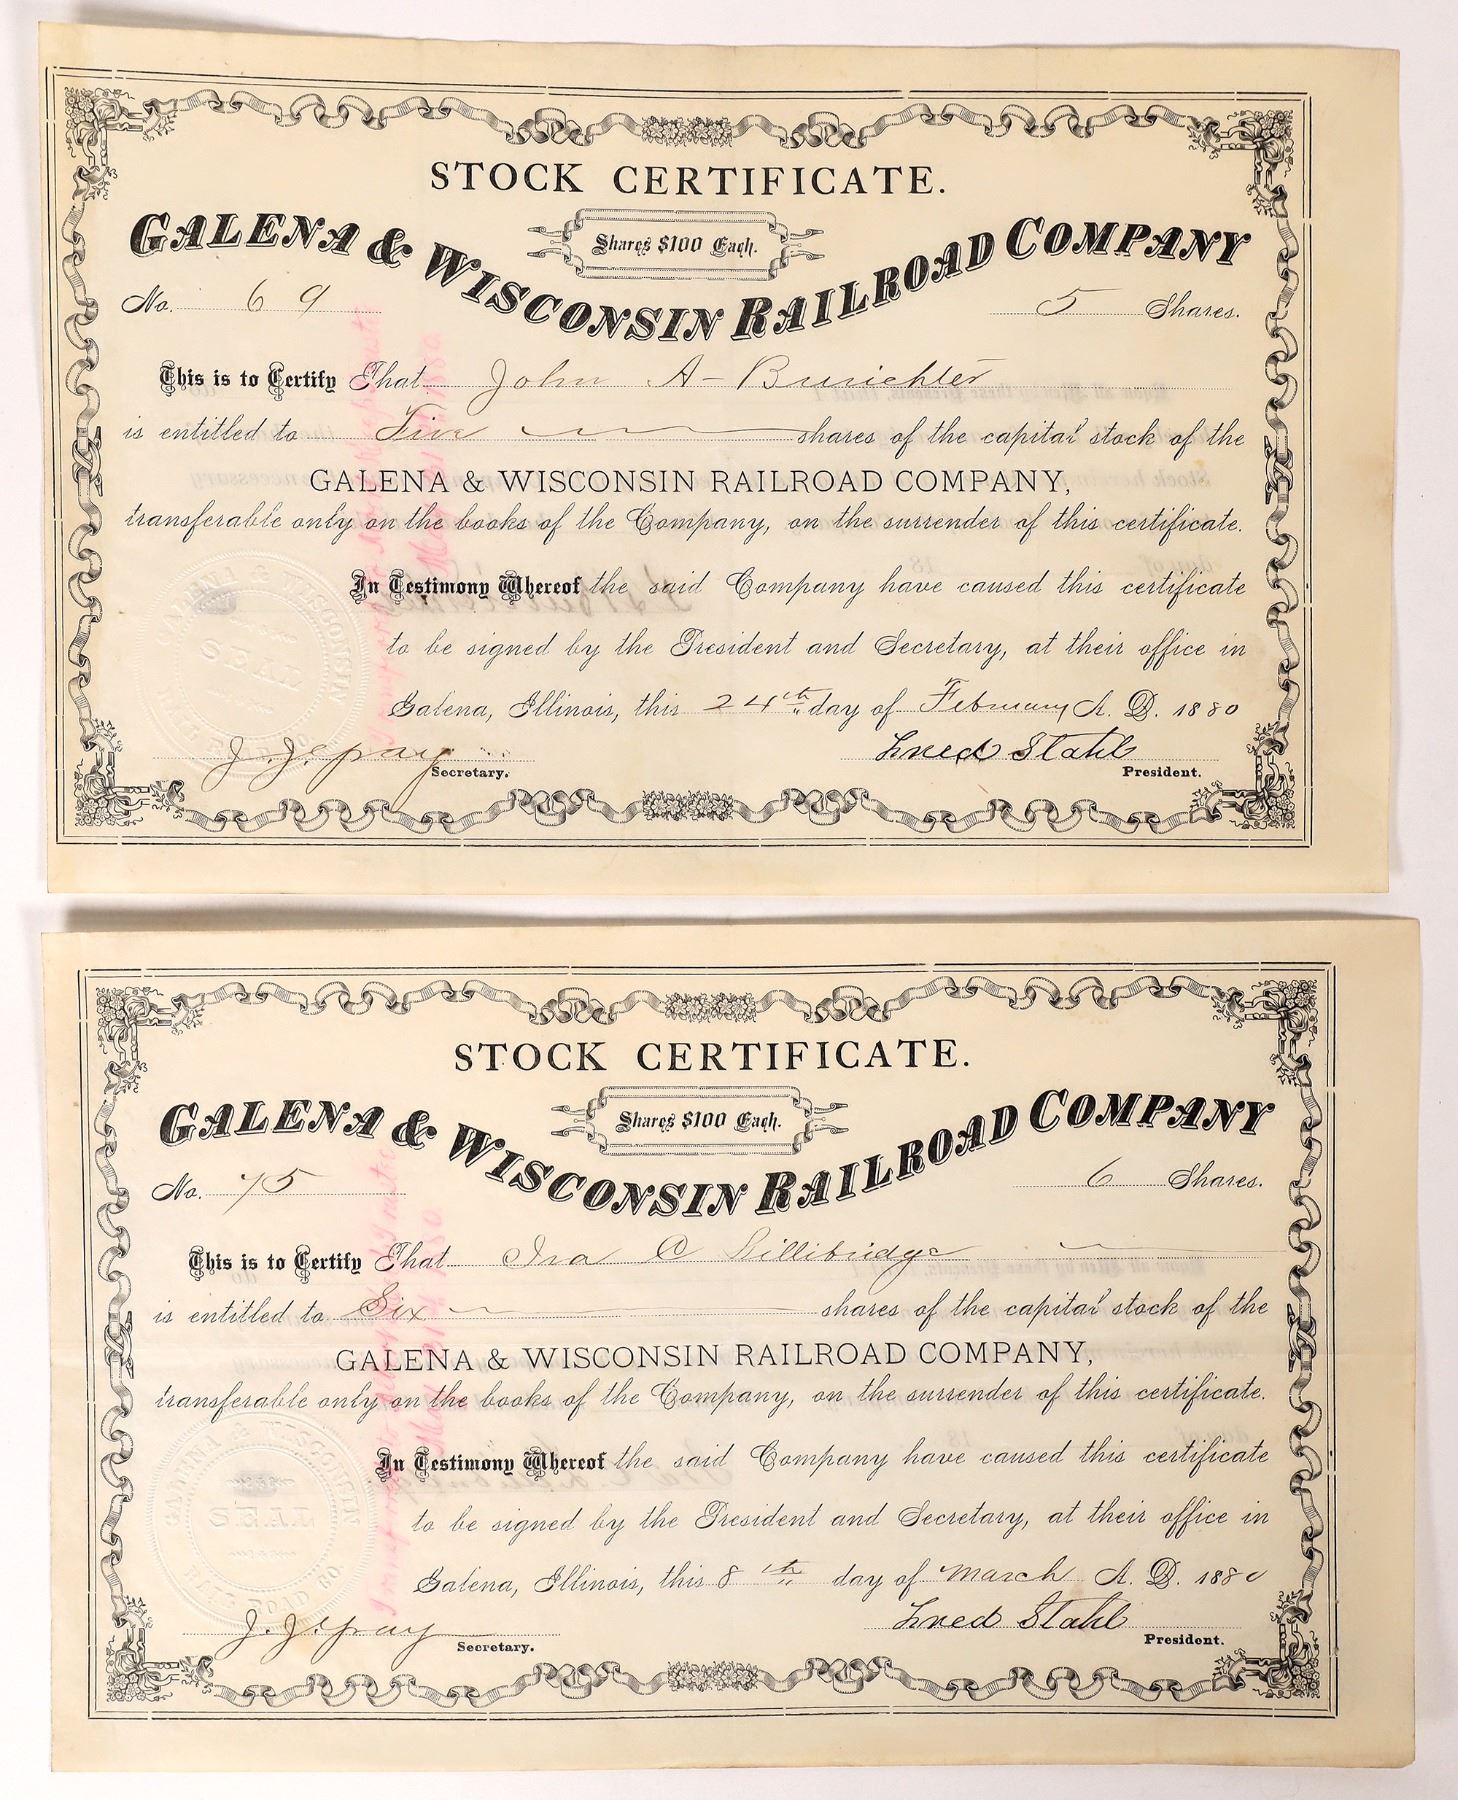 STOCK CERTIFICATE.
Shares $100 Each.
GALENA & WISCONSIN RAILROAD COMPANY
No. 69 5 Shares.
This is to Certify That John A-
is entitled to Five shares of the capital stock of the
GALENA & WISCONSIN RAILROAD COMPANY,
transferable only on the books of the Company, on the surrender of this certificate.
In Testimony Whereof the said Company have caused this certificate
to be signed by the President and Secretary, at their office in
Galena, Illinois, this 24th day of February A. D. 1880
Secretary.
Fred Stahl
President.
GALENA & WISCONSIN
SEAL
STOCK CERTIFICATE.
Shares $100 Each.
GALENA & WISCONSIN RAILROAD COMPANY
No. 75 6 Shares.
This is to Certify That Ira C Lillibridge
is entitled to Six shares of the capital stock of the
GALENA & WISCONSIN RAILROAD COMPANY,
transferable only on the books of the Company, on the surrender of this certificate.
In Testimony Whereof the said Company have caused this certificate
to be signed by the President and Secretary, at their office in
Galena, Illinois, this 8th day of March A. D. 1880
Secretary.
Fred Stahl
President.
GALENA & WISCONSIN
SEAL
RAIL ROAD CO.